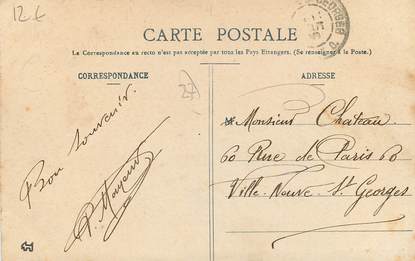 12 €
CARTE POSTALE
La Correspondance au recto n'est pas acceptée par tous les Pays Etrangers. (Se renseigner à la Poste.)
CORRESPONDANCE
27
Bon souvenir.
ADRESSE
Monsieur Chateau
60 Rue de Paris 60
Ville-Neuve St Georges